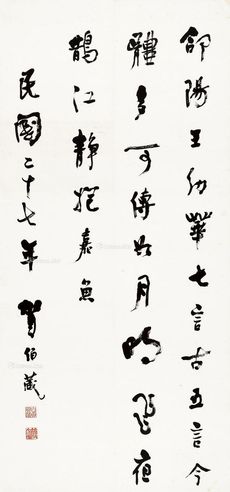 郃陽王幼華七言古五言今
體多可傳如月明隨夜
鵲江靜抱嘉魚
民國二十七年 賀伯箴